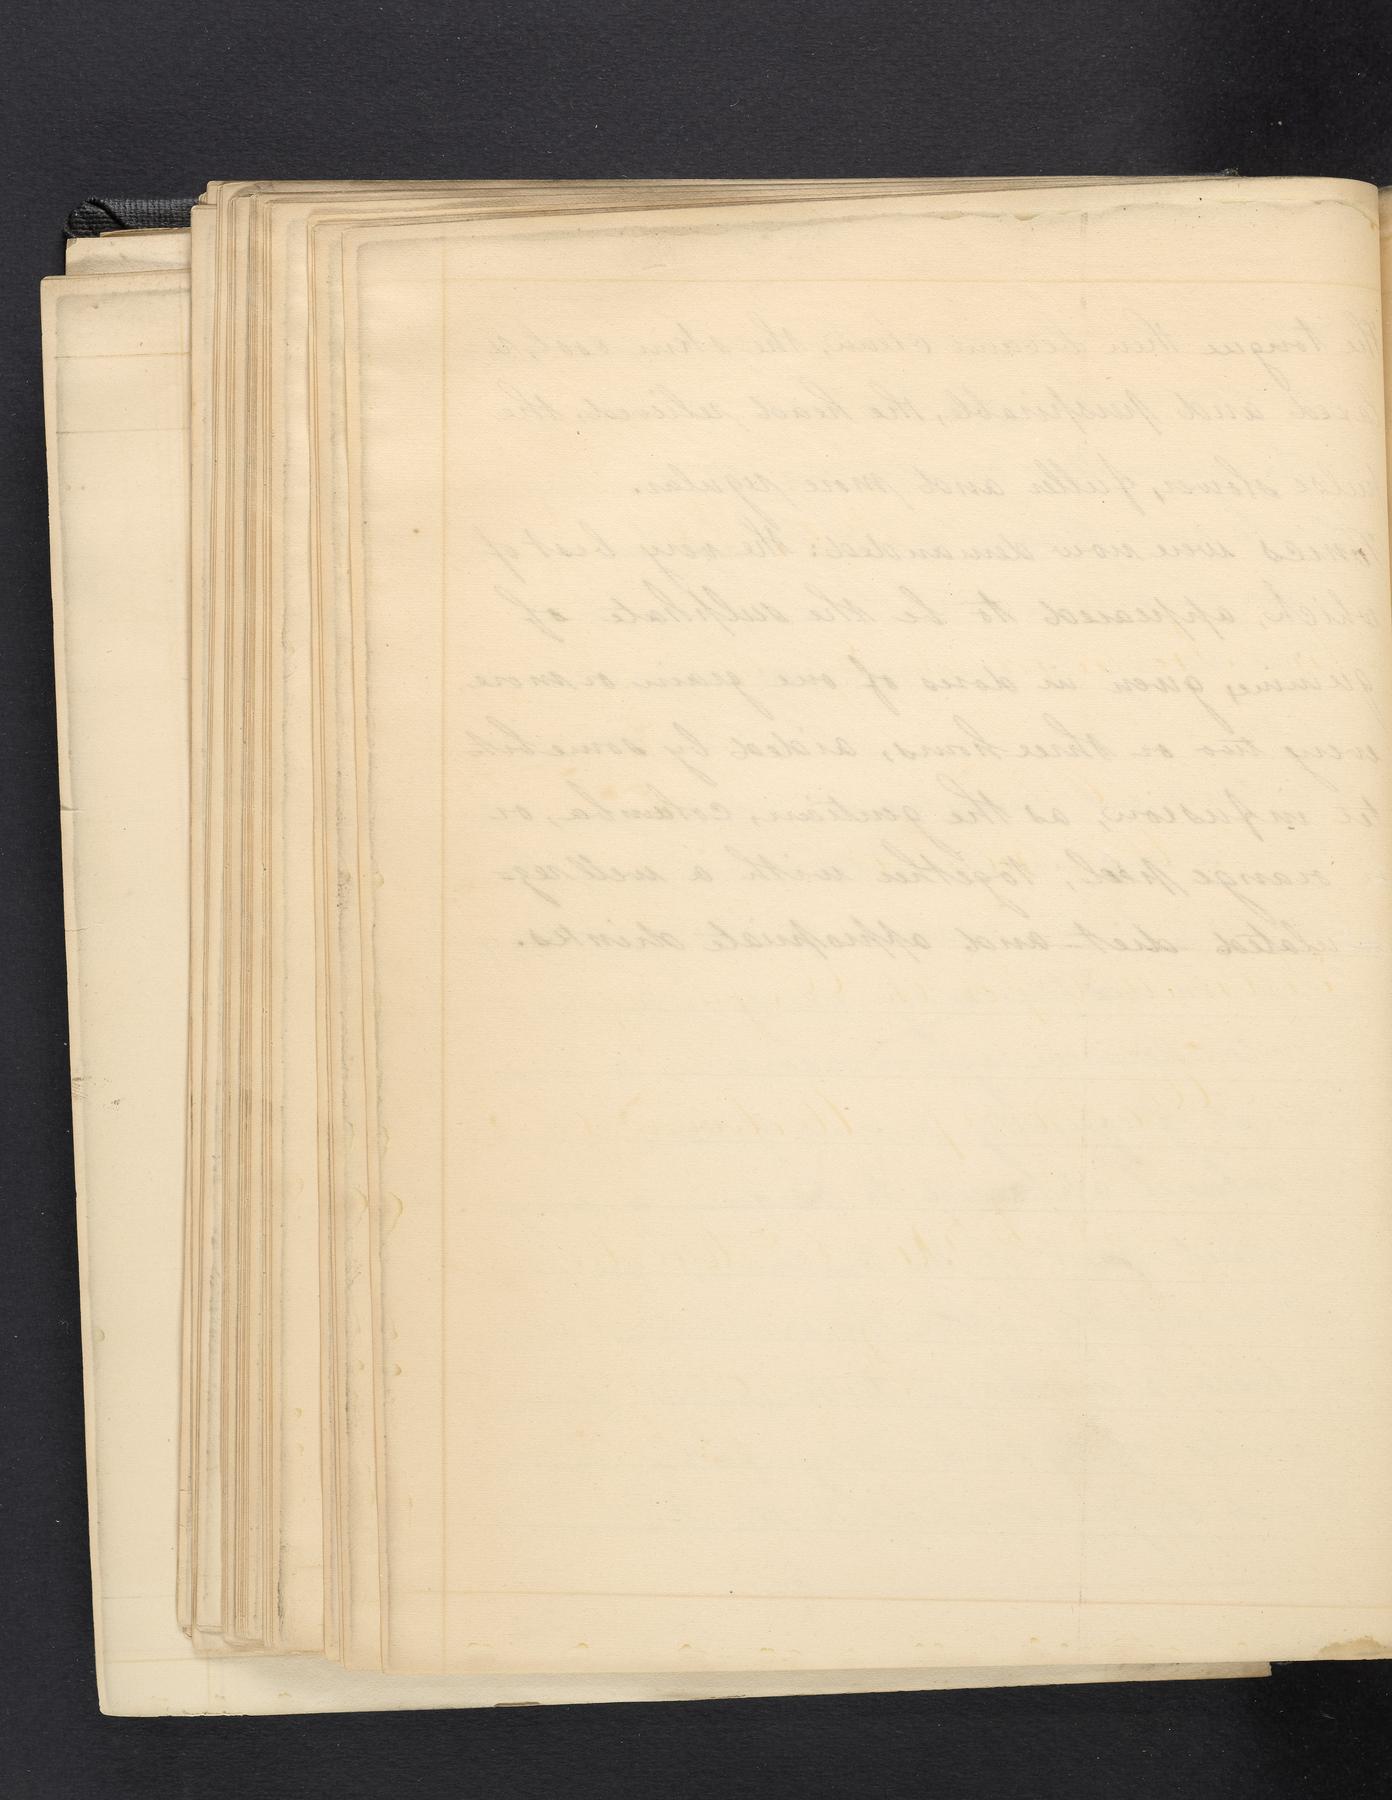 The tongue then became clean, the skin cool, &
and perspirable, the head relieved, the
pulse slower, fuller and more regular.
Tonics were now demanded: the very best of
which, appeared to be the sulphate of
quinine, given in doses of one grain or more
every two or three hours, aided by some bit-
ter infusion, as the gentian, columba, or
orange peel; together with a well reg-
ulated diet and appropriate drinks.